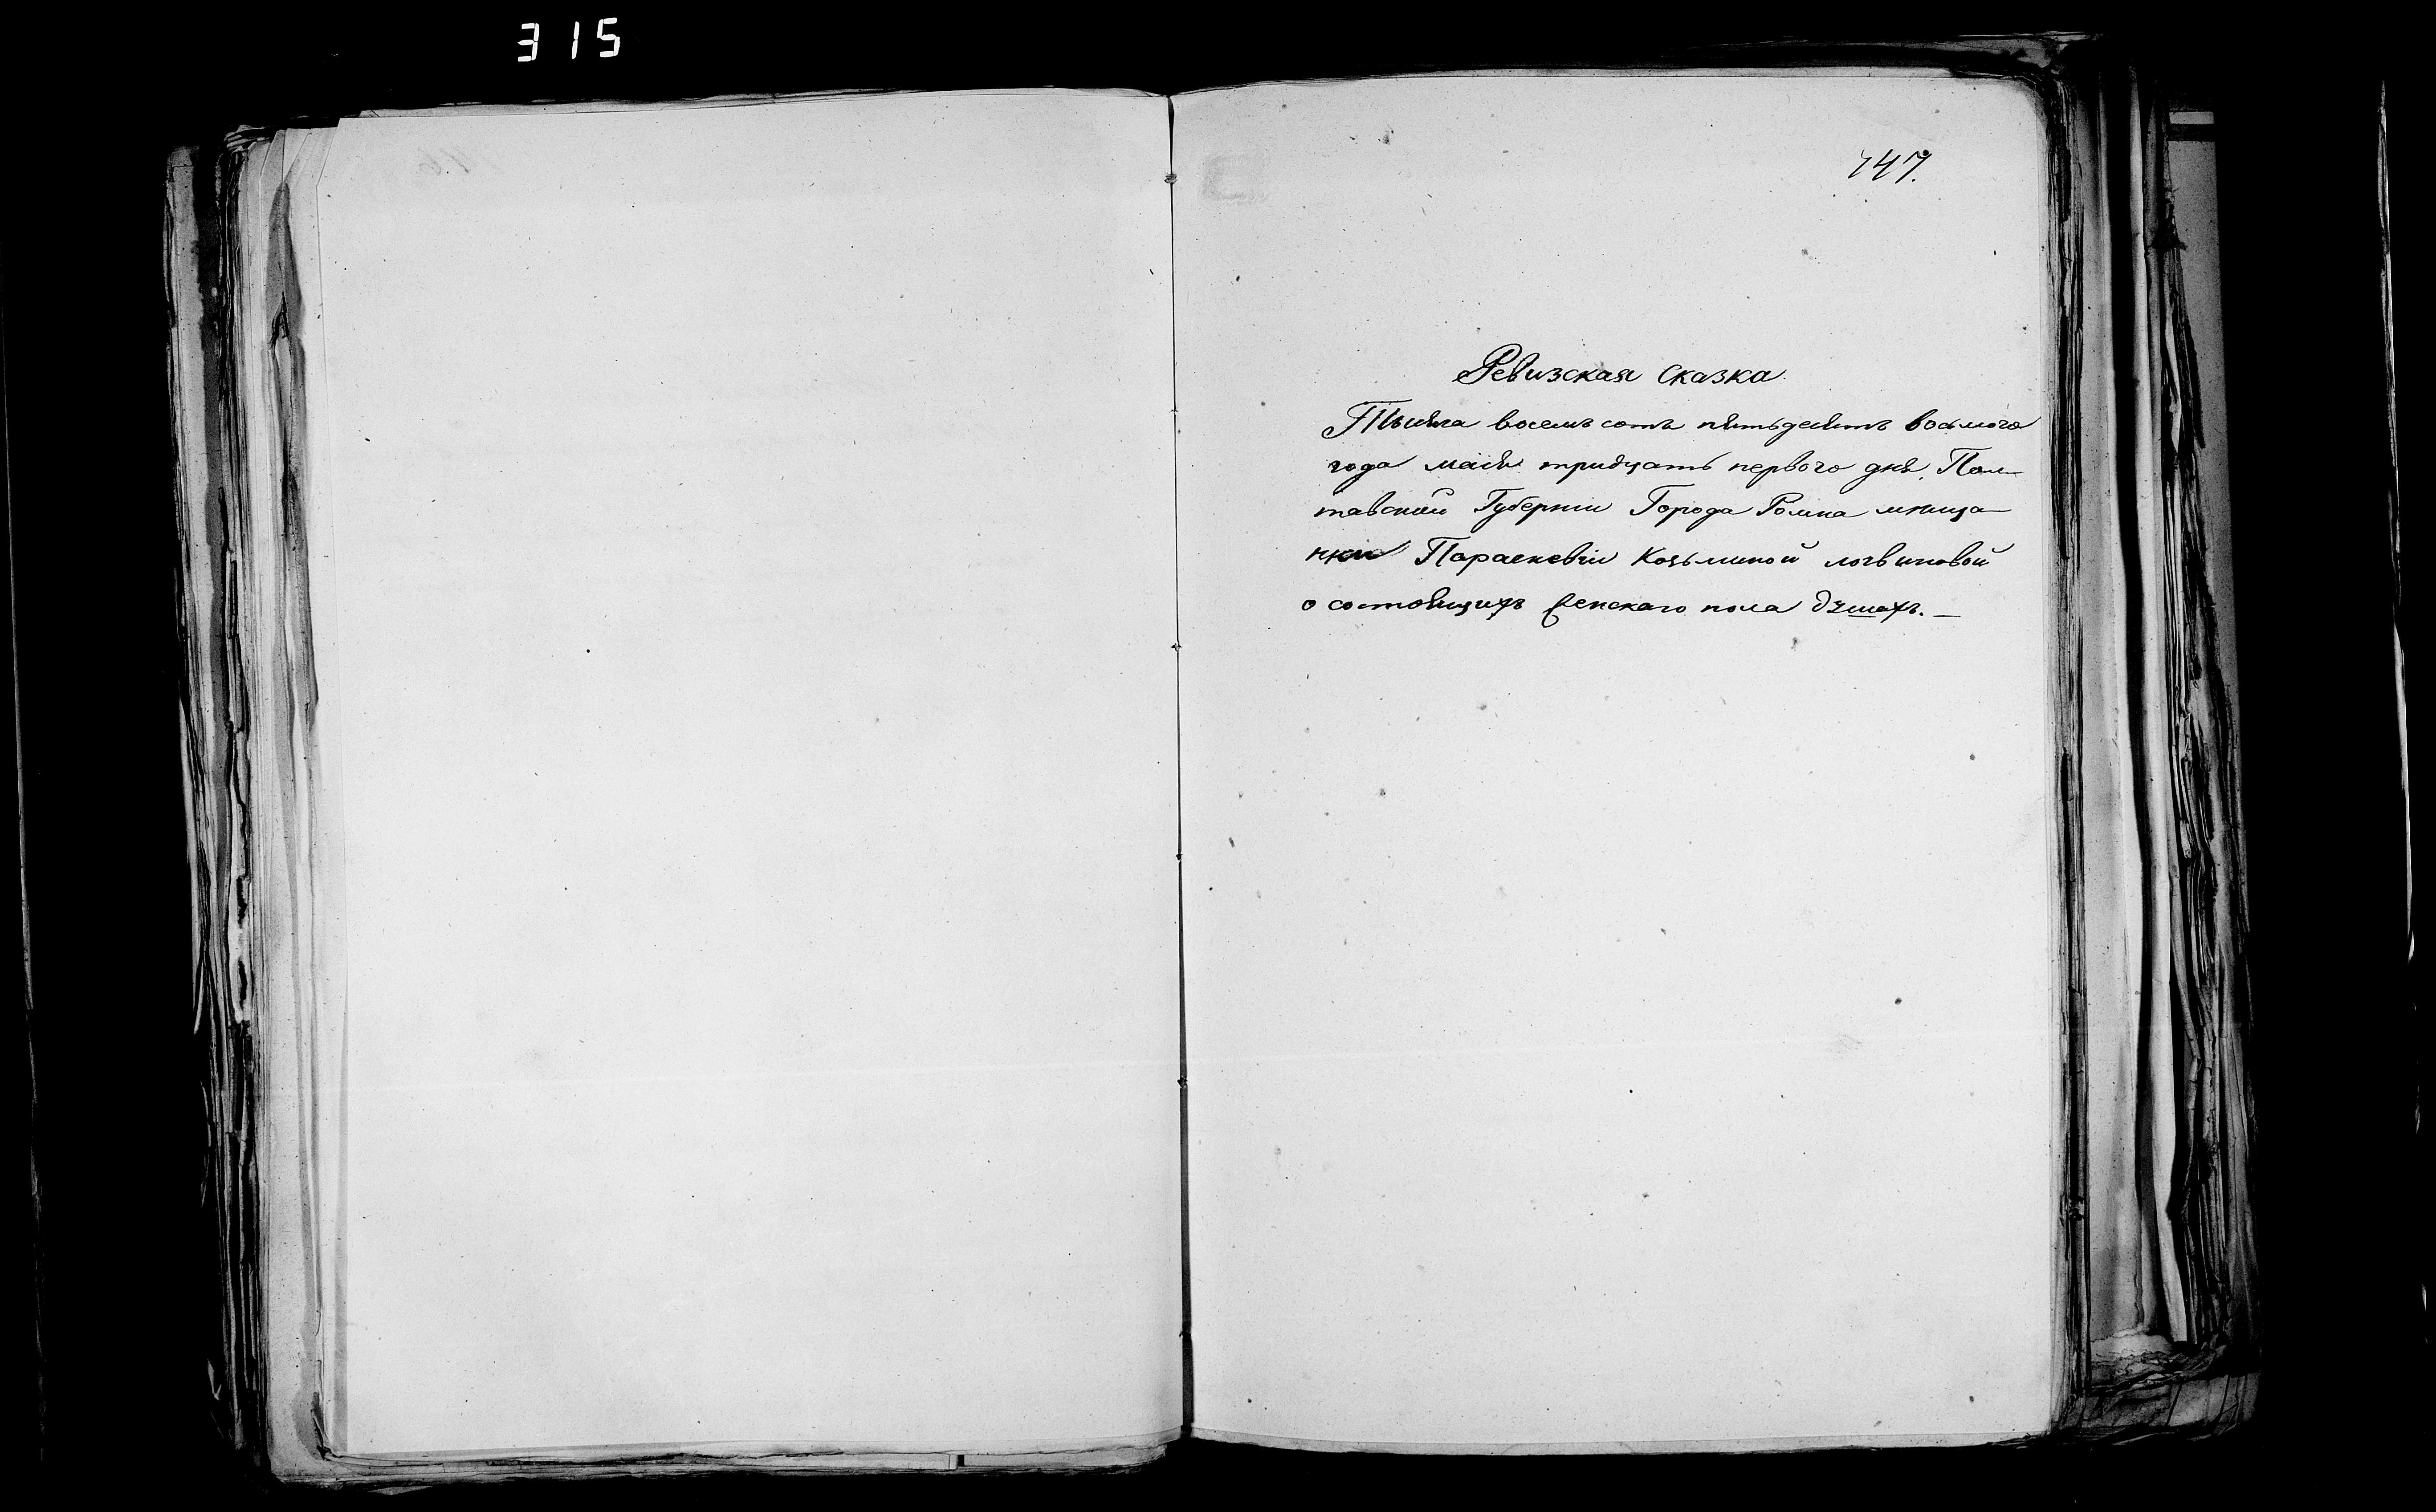 315
147.
Ревизская сказка.
Тысяча восемь сотъ пятьдесятъ восьмого
года мая тридцать перваго дня, Пол-
тавской Губерніи Города Ромна мѣща-
нки Параскевіи Козьминой логвиновой
о состоящихъ женскаго пола душахъ. —